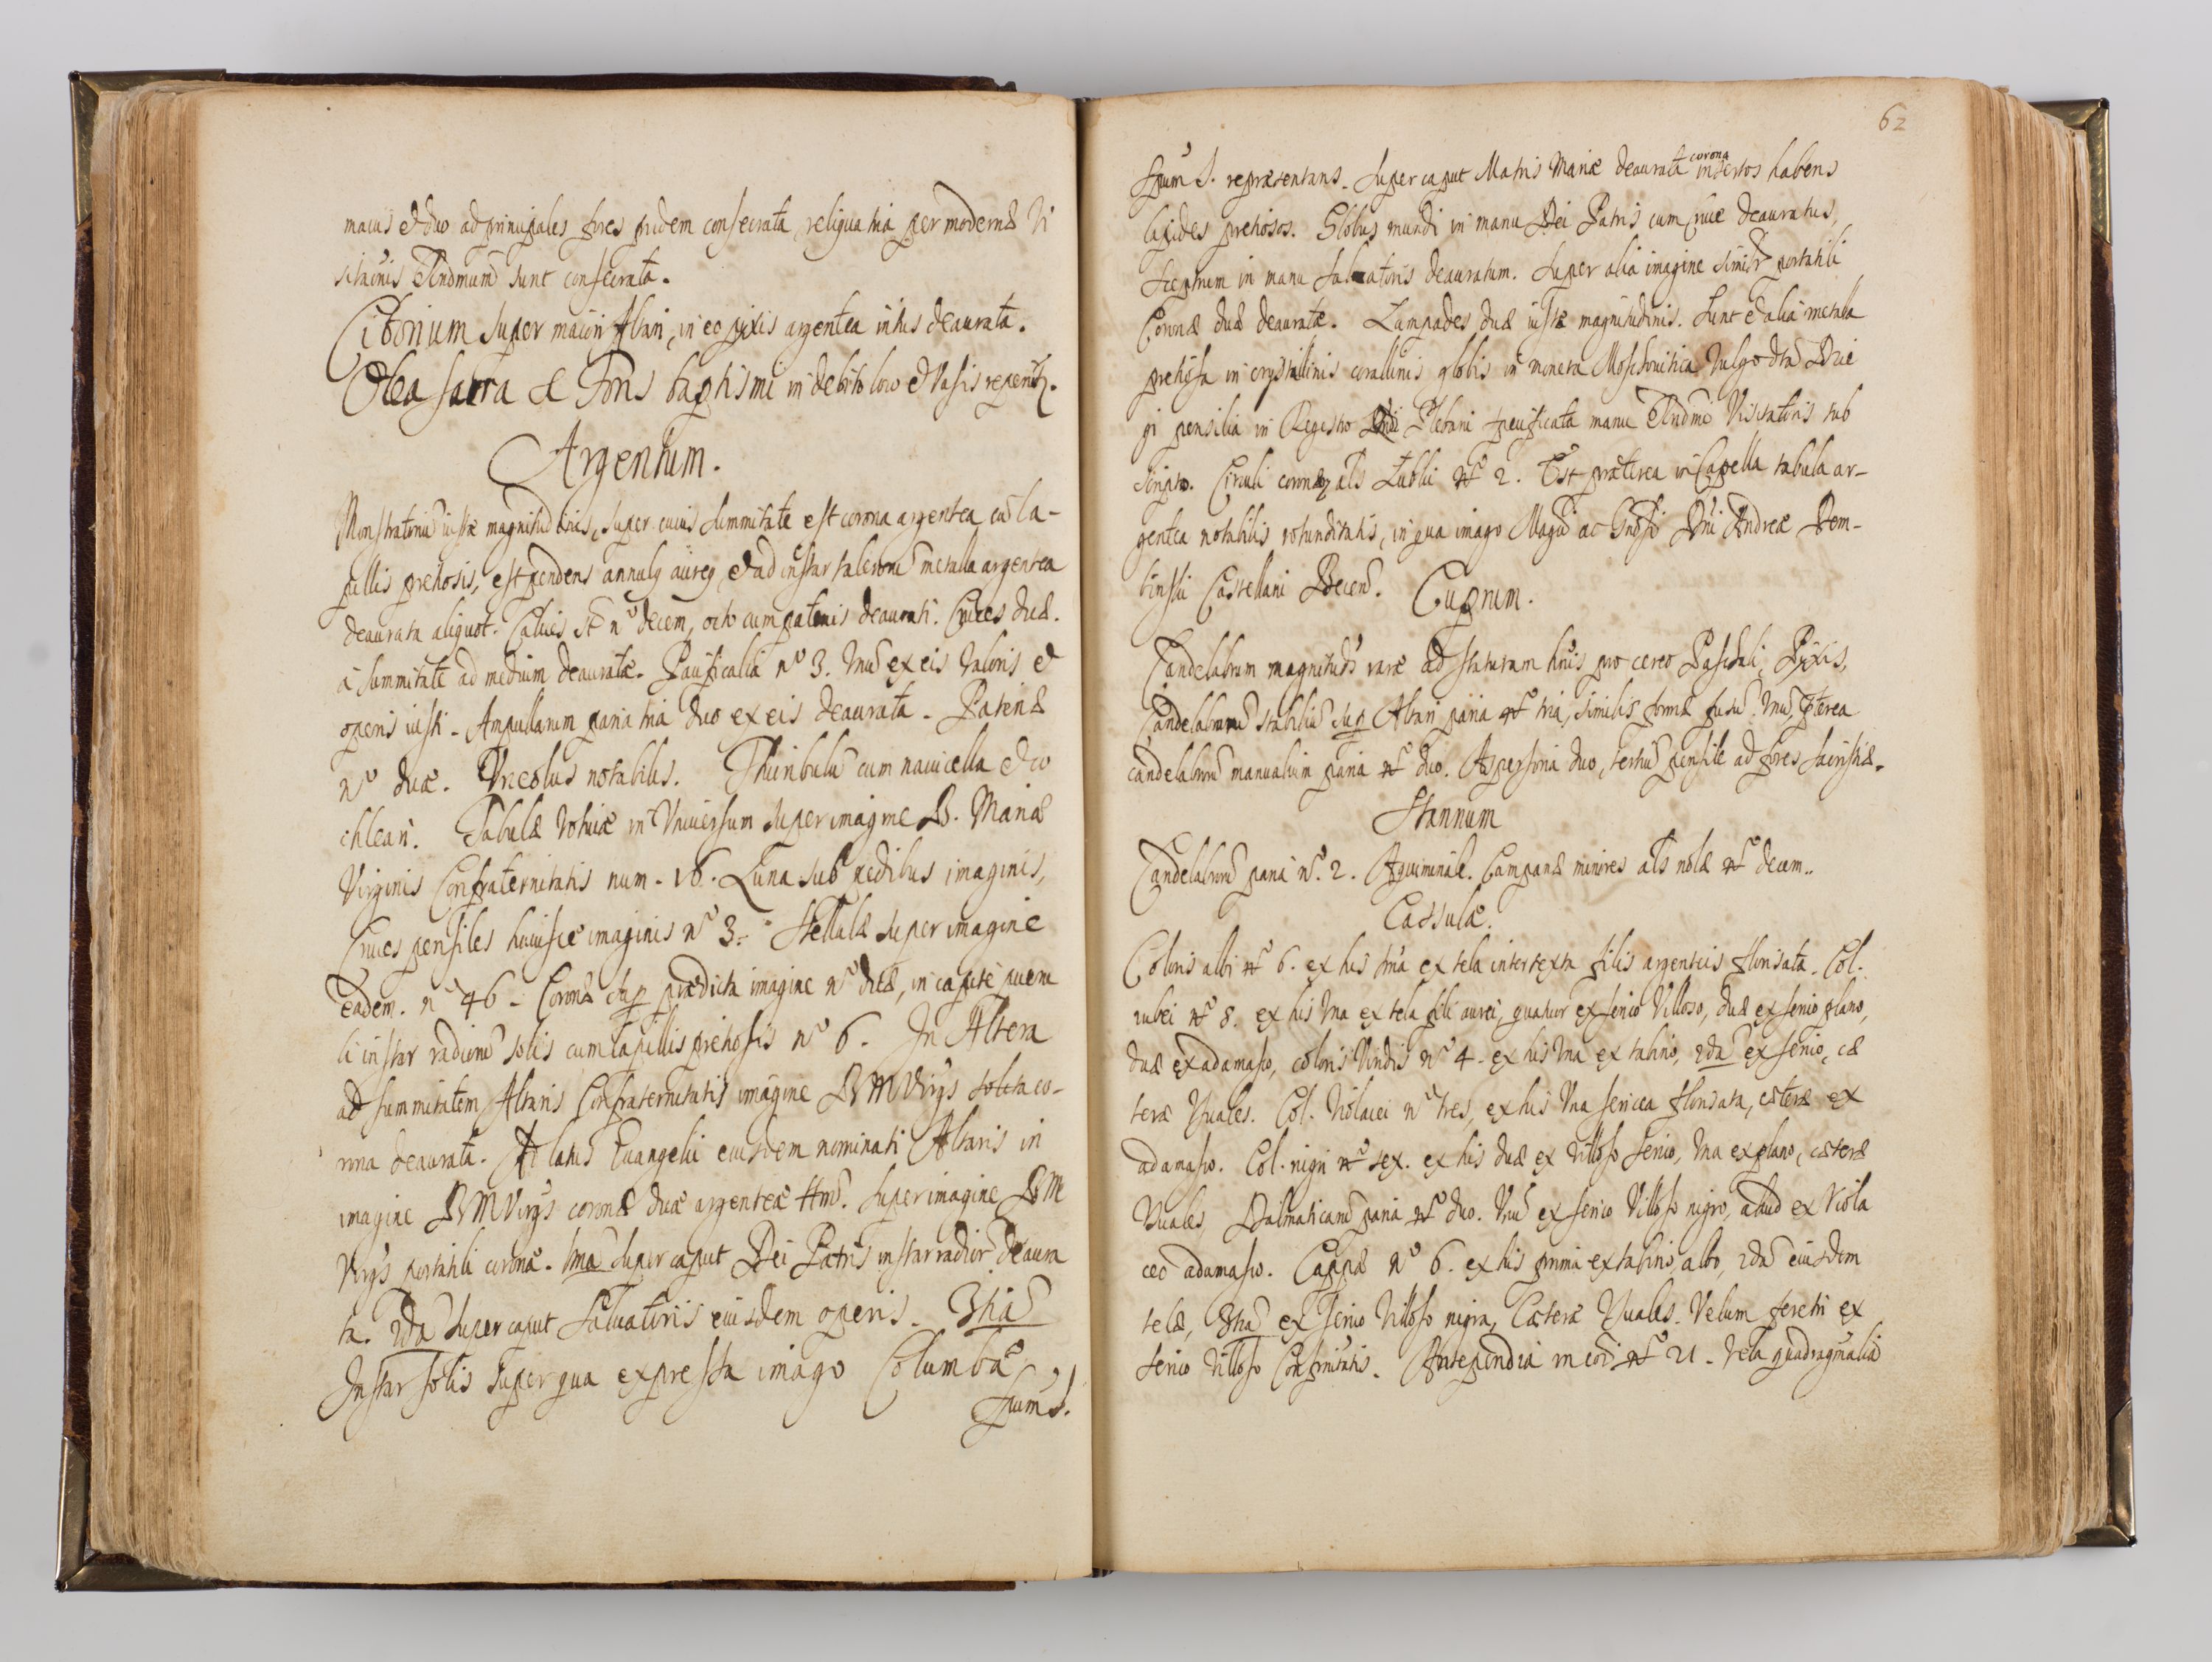 maius et duo ad principales fores pridem consecrata, reliqua tria per modernū Vi
sitaōnis Rndmum sunt consecrata.
Ciborium super maiori Altari, in eo pixis argentea intus deaurata.
Olea sacra et Fons baptismi in debito loco et Vasis reperītr.
Argentum.
Monstratoriū iustæ magnitudinis, super cuius summitate est corona argentea cū la-
pillis pretiosis, est pendens annulq aureq et ad instar talerorū metalla argentea
deaurata aliquot. Calices st̄ no decem, octo cum patenis deaurati. Cruces duæ.
a summitate ad medium deauratæ. Pacificalia No 3. Unū ex eis Valoris et
operis iusti. Ampullarum paria tria duo ex eis deaurata. Patenæ
No duæ. Urceolus notabilis. Thuribulū cum navicella et co
chleari. Tabulæ Votivæ in Universum super imagine B. Mariæ
Virginis Confraternitatis num. 16. Luna sub pedibus imaginis,
Cruces pensiles huiusce imaginis No 3. Stellulæ super imagine
eadem. no 46. Coronæ sup prædicta imagine No duæ, in capite pueru
li instar radiorū solis cum lapillis pretiosis No 6. In Altera
ad summitatem Altaris Confraternitatis imagine BMVirgs soleta co-
rona deaurata. Ad latus Euangelii eiusdem nominati Altaris in
imagine BMVirgs coronæ duæ argenteæ ttm̄. Super imagine BM
Virgs portatili coronæ. Ima super caput Dei Patris instar radiorū deaura
ta. 2da super caput Saluatoris eiusdem operis. 3tia
Instar solis super qua expressa imago Columbæ
Spum S.
62
Spum S. repræsentans. Super caput Matris Mariæ deaurata corona insertos habens
lapides pretiosos. Globus mundi in manu Dei Patris cum Cruce deauratus,
sceptrum in manu Saluatoris deauratum. Super alia imagine simir portatili
Coronæ duæ deauratæ. Lampades duæ iustæ magnitudinis. Sunt et alia metala
pretiosa in crystallinis corallinis globis in moneta Moschouitica Vulgo dta Dzie
gi pensilia in Registro Dni Plebani specificata manu Rndmi Visitatoris sub
scripto. Circuli coronæ als Lublii No 2. Est præterea in Capella tabula ar-
gentea notabilis rotunditatis, in qua imago Magci ac Gnosi Dni Andreæ Dem-
binski Castellani Biecen.
Cuprum.
Candelabrum magnituds raræ ad staturam hoīis pro cereo Paschali, Pixis,
Candelabrorū stabiliū sup Altari paria No tria, similis formæ fusū. Unū, pterea
candelabrorū manualium paria No duo. Aspersoria duo, tertiū pensile ad fores Sacristiæ.
Stannum
Candelabrorū paria No. 2. Aquiminale. Campanæ minores als nolæ No decem..
Cassulæ.
Coloris albi No 6. ex his Ima ex tela intertexta filis argenteis florisata. Col.
rubei No 8. ex his Una ex tela fili aurei, quatuor ex serico Villoso, duæ ex serico plano,
duæ ex adamasco, coloris Viridis No 4. ex his Una ex tabino, 2da ex serico, cæ
teræ Usuales. Col. Violacei No tres, ex his Una sericea florisata, cæteræ ex
adamasco. Col. nigri No sex. ex his duæ ex Villoso serico, Una ex plano, cæteræ
Usuales. Dalmaticarū paria No duo. Unū ex serico Villoso nigro, aliud ex Viola
ceo adamasco. Cappæ No 6. ex his prima ex tabino, albo, 2da eiusdem
telæ, 3tia ex serico Villoso nigra, Cæteræ Usuales. Velum feretri ex
serico Villoso Confrnitatis. Antependia in No 21. Vela quadragmalia